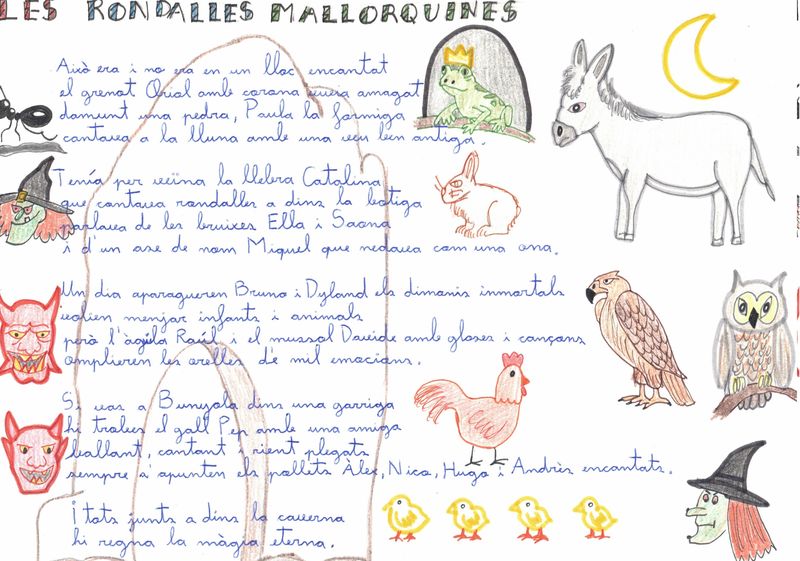 LES RONDALLES MALLORQUINES
Això era i no era en un lloc encantat
el grenot Oriol amb corona vivia amagat
damunt una pedra, Paula la formiga
cantava a la lluna amb una veu ben antiga.
Tenía per veïna la llebra Catalina
que contava rondalles a dins la botiga
parlava de les bruixes Ella i Saona
i d'un ase de nom Miquel que nedava com una ona.
Un dia aparagueren Bruno i Dyland els dimonis inmortals
volien menjar infants i animals
però l'àguila Raúl i el mussol Davide amb gloses i cançons
ompliren les orelles de mil emocions.
Si vas a Bunyola dins una garriga
hi trobes el gall Pep amb una amiga
ballant, cantant i rient plegats
sempre s'apunten els pollets Àlex, Nico, Hugo i Andrès encantats.
I tots junts a dins la caverna
hi regna la màgia eterna.